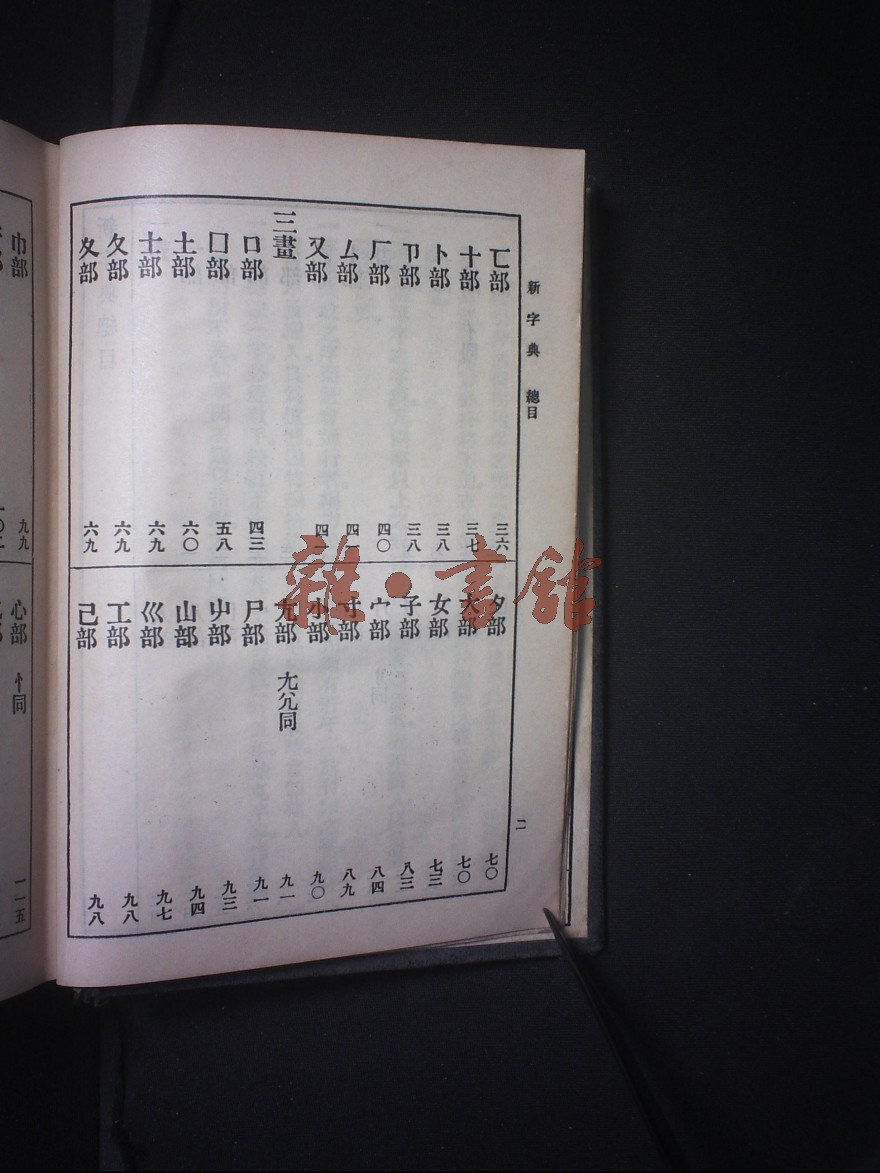 新字典 總目
二
匸部 三六
十部 三七
卜部 三八
卩部 三八
厂部 四〇
厶部 四
又部 四
三畫
口部 四三
囗部 五八
土部 六〇
士部 六九
夂部 六九
夊部 六九
夕部 七〇
大部 七〇
女部 七三
子部 八三
宀部 八四
寸部 八九
小部 九〇
尢部 尣允同 九一
尸部 九一
屮部 九三
山部 九四
巛部 九七
工部 九八
己部 九八
巾部 九九
心部 忄同 一一五
雜·書館